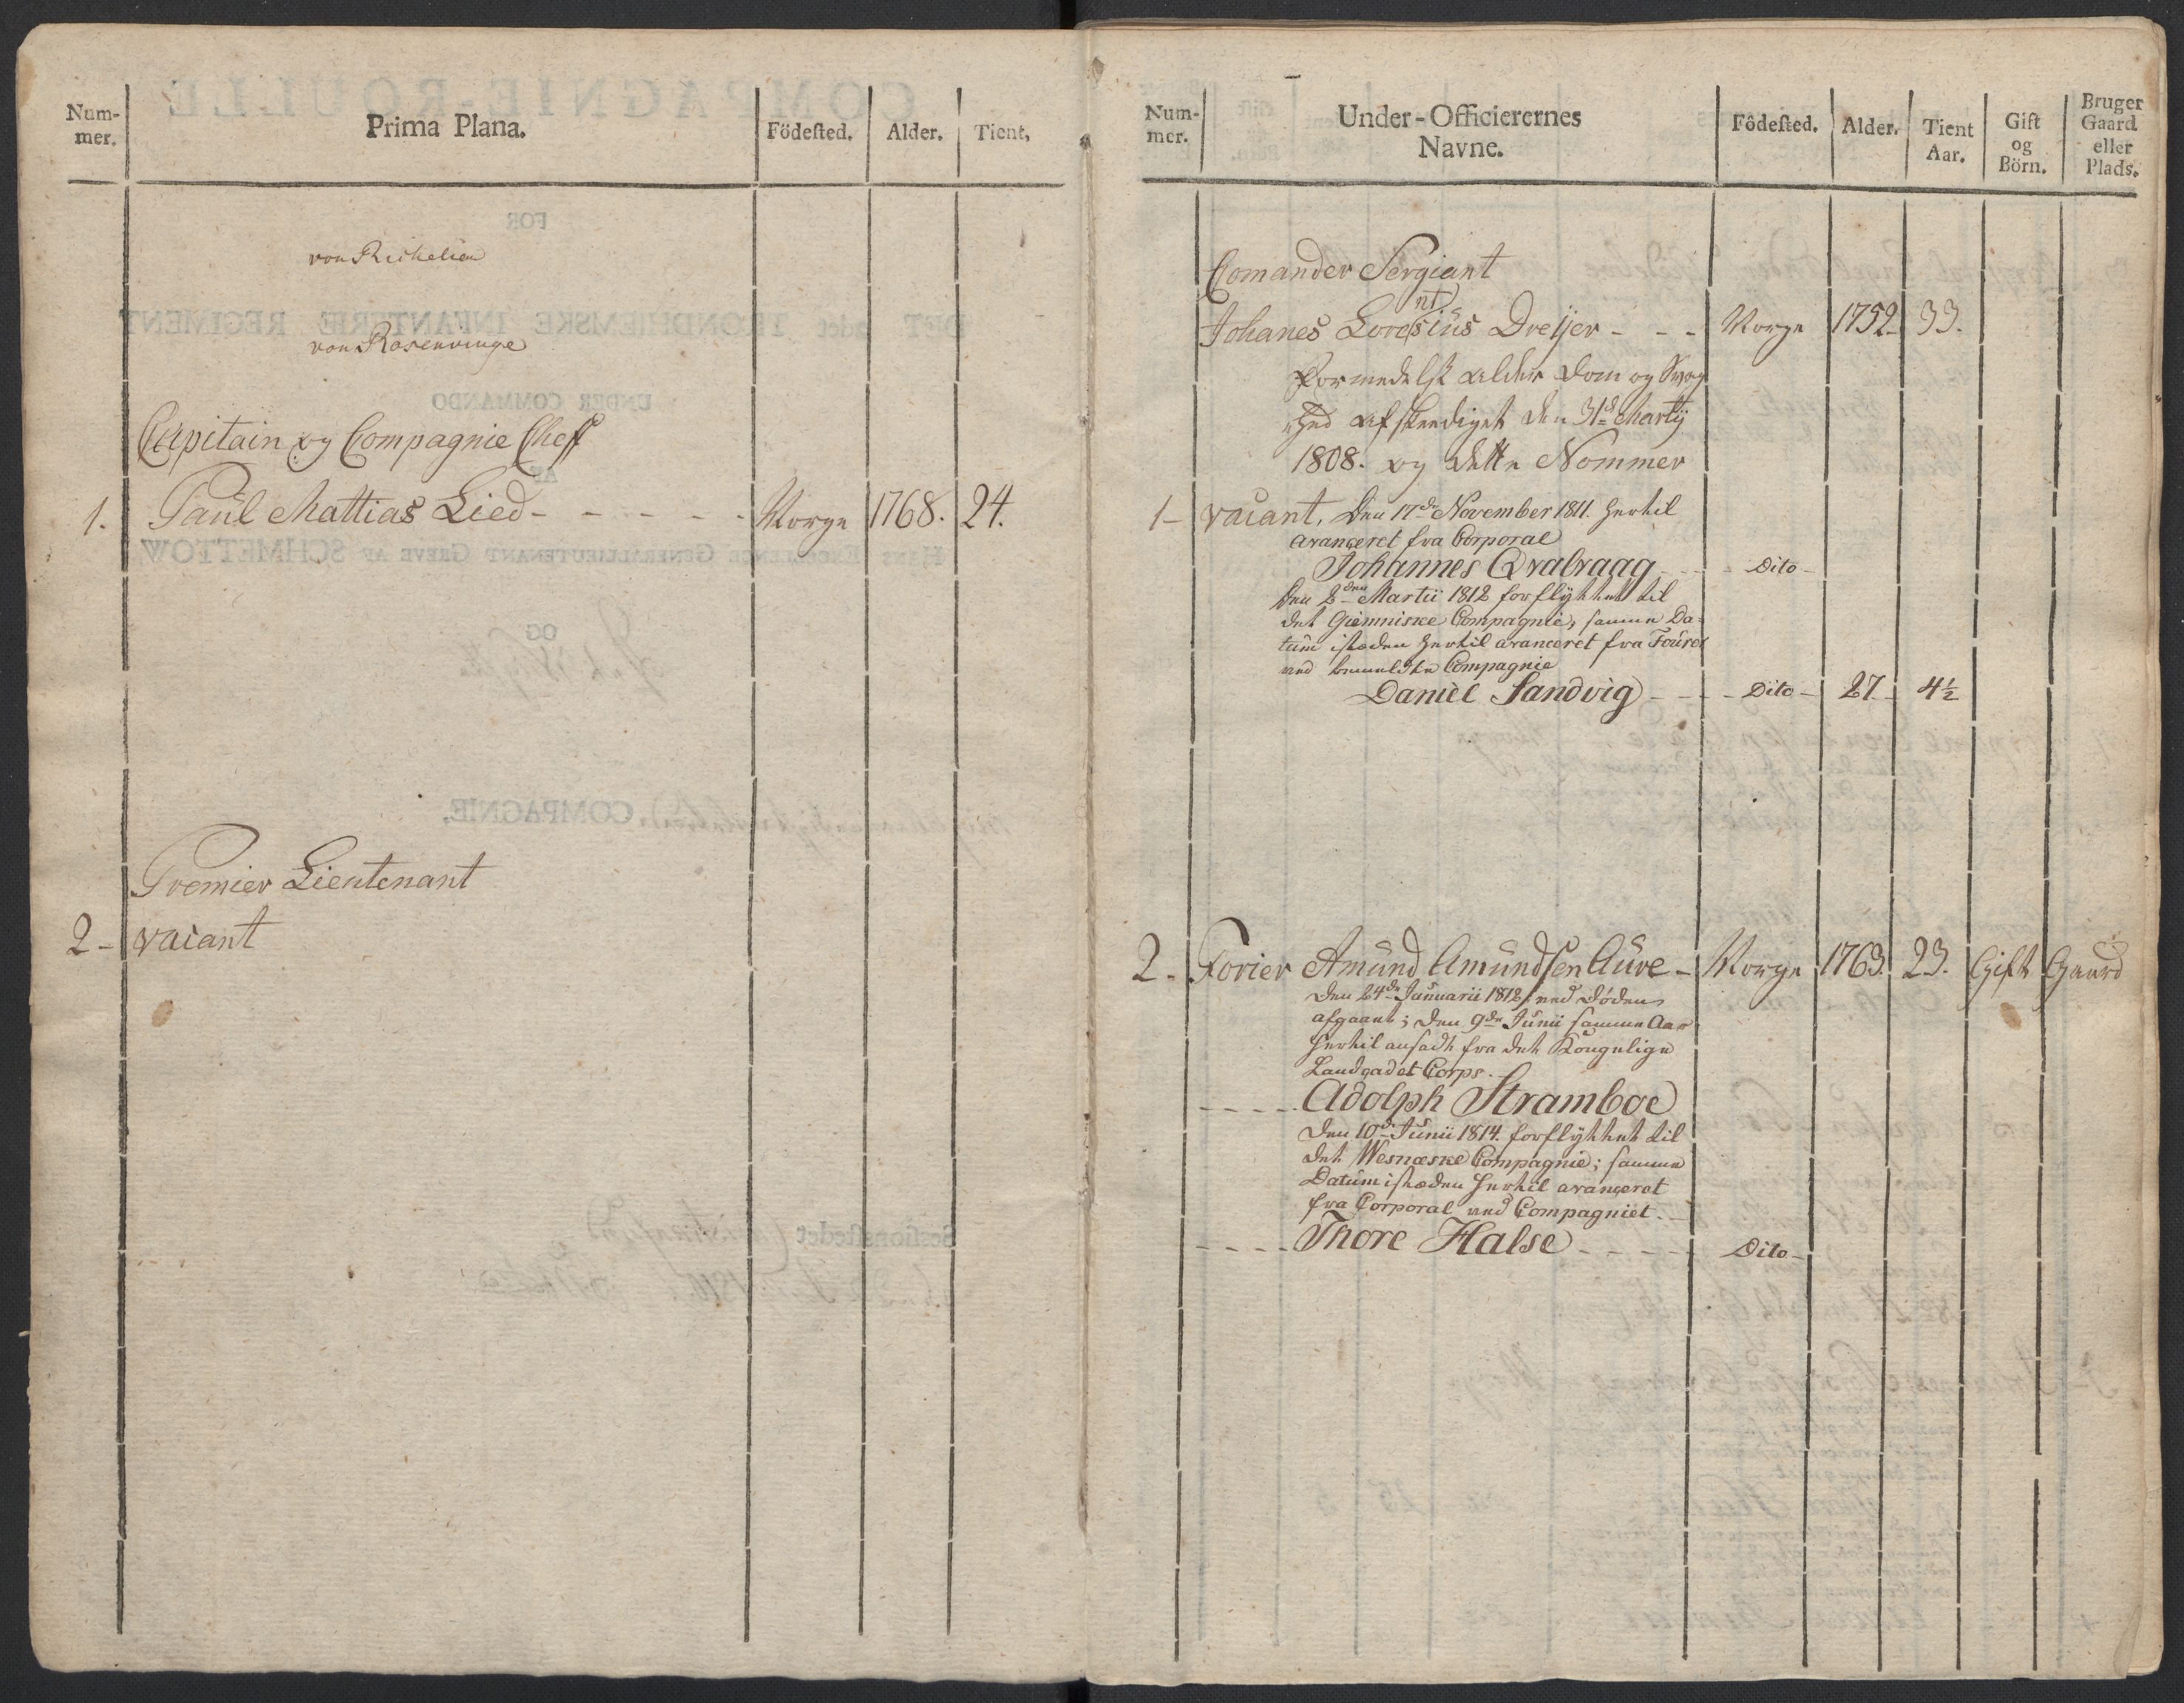 Num-
mer.
Prima Plana.
Födested.
Alder.
Tient,
von Richelieu
von Rosenvinge
Capitain og Compagnie Cheff
1. Paul Mattias Lied - - - - - Norge 1768. 24.
Premier Lieutenant
2 - vacant
Num-
mer.
Under-Officierernes
Navne.
Födested.
Alder.
Tient
Aar.
Gift
og
Börn.
Bruger
Gaard
eller
Plads.
Comander Sergiant
nt
Johanes Loresius Dreyer - - - Norge 1752 33.
Formedelst alder dom og Svag
hed afskeediget den 31te Martij
1808. og dette Nommer
1 - vacant, den 17de November 1811. hertil
avanceret fra Corporal
Johannes Qvalvaag - - Dito -
den 2den Martii 1812 forflyttet til
det Giemniske Compagnie, samme Da-
tum isteden hertil avanceret fra Fourer
ved bemeldte Compagnie
Daniel Sandvig - - - Dito - 27 - 4½
2 - Forier Amund Amundsen Aure - Norge 1763. 23. Gift Gaard
den 24de Januarii 1812 ved döden
afgaaet; den 9de Junii samme Aar
hertil ansadt fra det Kongelige
Landcadet Corps.
- - - - Adolph Stramboe
den 10de Junii 1814. forflyttet til
det Wesnæske Compagnie; samme
Datum isteden hertil avanceret
fra Corporal ved Compagniet. -
- - - - Thore Halse - - - - - Dito -